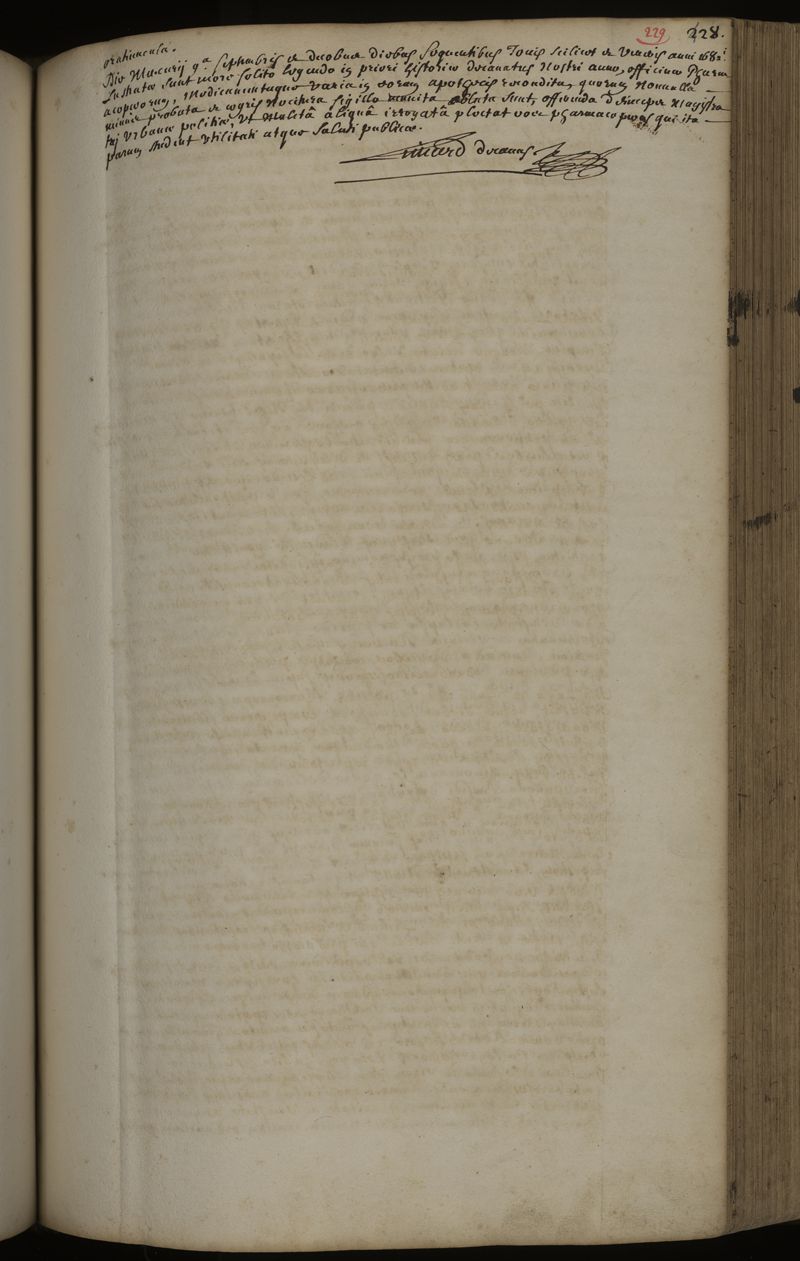 229 228.
gratiuncula.
Die Mercurij 9a septembris & duobus diebus sequentibus Jovis scilicet & Veneris anni 1681
Lustratæ sunt more solito legendo in priori historiæ decanatus nostri anno, officinæ Pharma
acopœorum, medicamentaque varia in eorum apothecis recondita, quorum nonnulla
minus probata & ægris nocitura sigillo munita ablata sunt, offerenda deinceps Magistra
tui Urbanæ politiæ, ut mulctâ aliquâ irrogatâ plectat eos pharmacopœos qui ita
parum student utilitati atque saluti publicæ.
decanus.